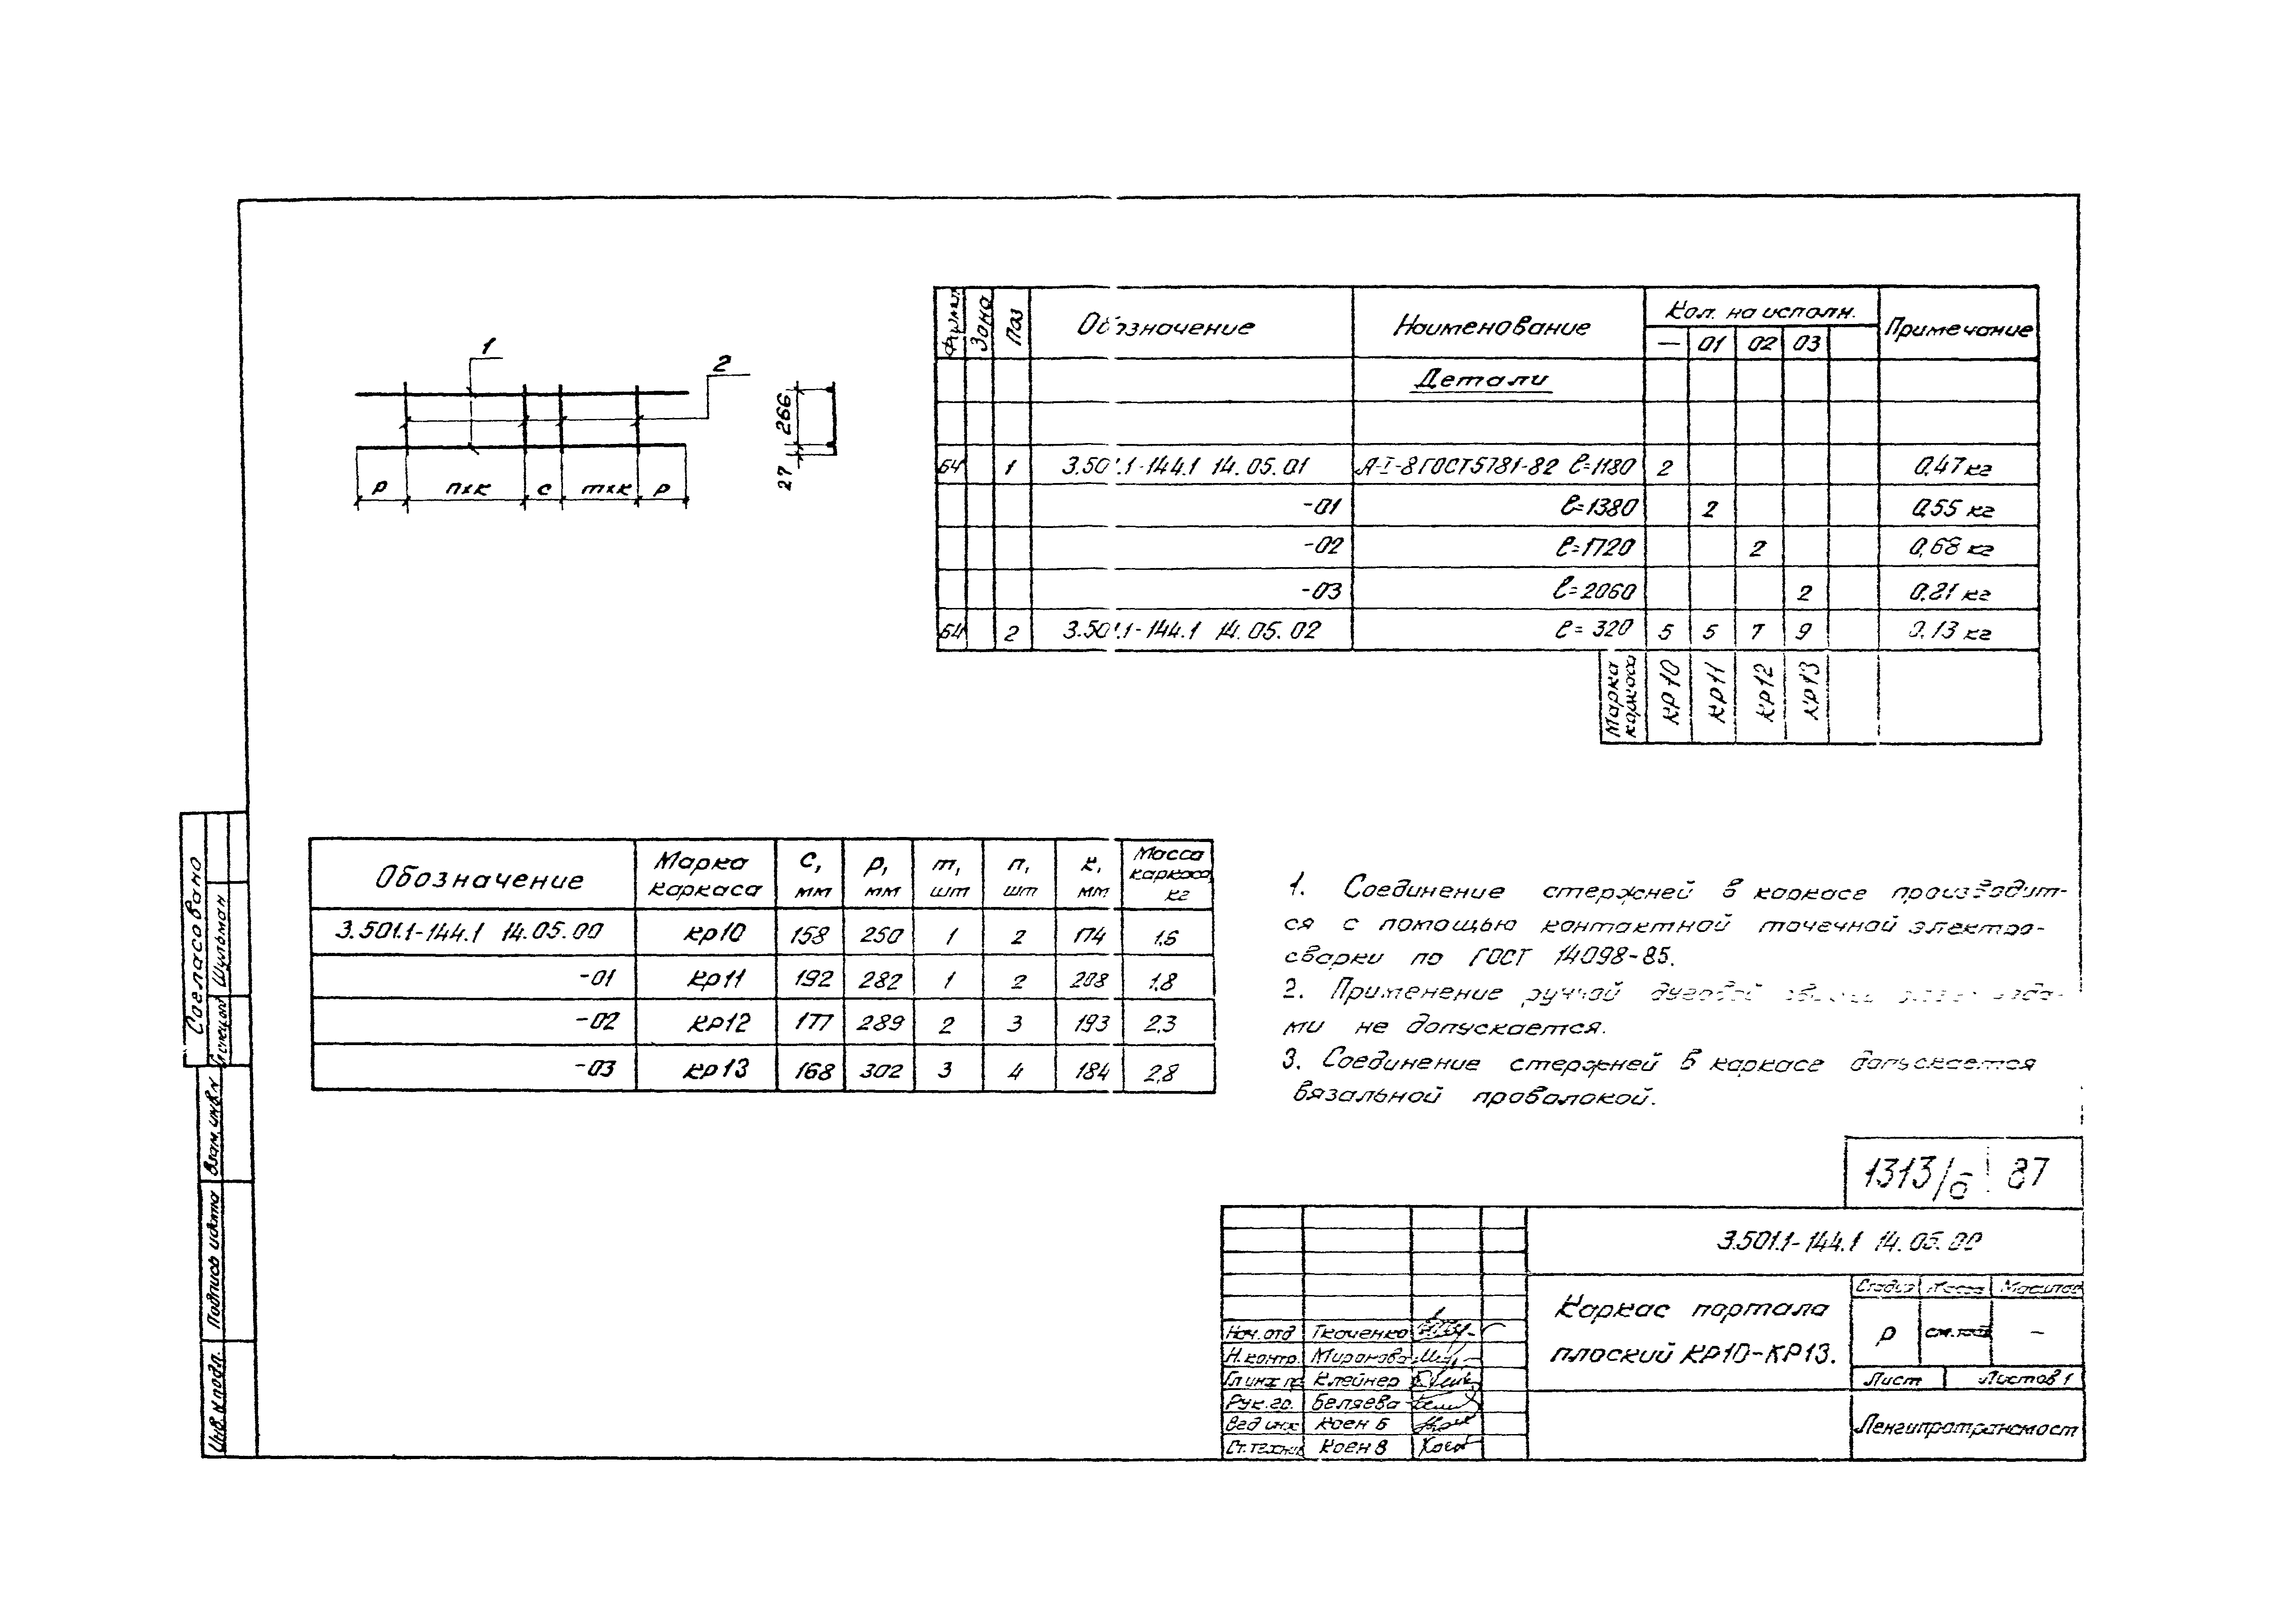 1
2
266
27
р
п×к
с
т×к
р
Формат
Зона
Поз
Обозначение
Наименование
Кол. на исполн.
Примечание
— 01 02 03
Детали
Б4 1 3.501.1-144.1 14.05.01 А-I-8 ГОСТ 5781-82 ℓ=1180 2 0,47 кг
-01 ℓ=1380 2 0,55 кг
-02 ℓ=1720 2 0,68 кг
-03 ℓ=2060 2 0,81 кг
Б4 2 3.501.1-144.1 14.05.02 ℓ= 320 5 5 7 9 0,13 кг
Марка каркаса
КР10
КР11
КР12
КР13
Обозначение
Марка каркаса
с, мм
р, мм
т, шт
п, шт
к, мм
Масса каркаса кг
3.501.1-144.1 14.05.00 кр10 158 250 1 2 174 1,6
-01 кр11 192 282 1 2 208 1,8
-02 кр12 177 289 2 3 193 2,3
-03 кр13 168 302 3 4 184 2,8
1. Соединение стержней в каркасе производит-
ся с помощью контактной точечной электро-
сварки по ГОСТ 14098-85.
2. Применение ручной дуговой
ми не допускается.
3. Соединение стержней в каркасе допускается
вязальной проволокой.
1313/6 87
3.501.1-144.1 14.05.00
Каркас портала
плоский КР10-КР13.
Стадия Масса Масштаб
Р –
Лист Листов 1
Ленгипротрансмост
Нач.отд Ткаченко
Н.контр. Миронова
Гл инж пр Клейнер
Рук.гр. Беляева
Вед инж Коен Б
Ст.техник Коен В
Согласовано
Гл.спец.отд Шульман
Взам.инв.N
Подпись и дата
Инв. N подл.